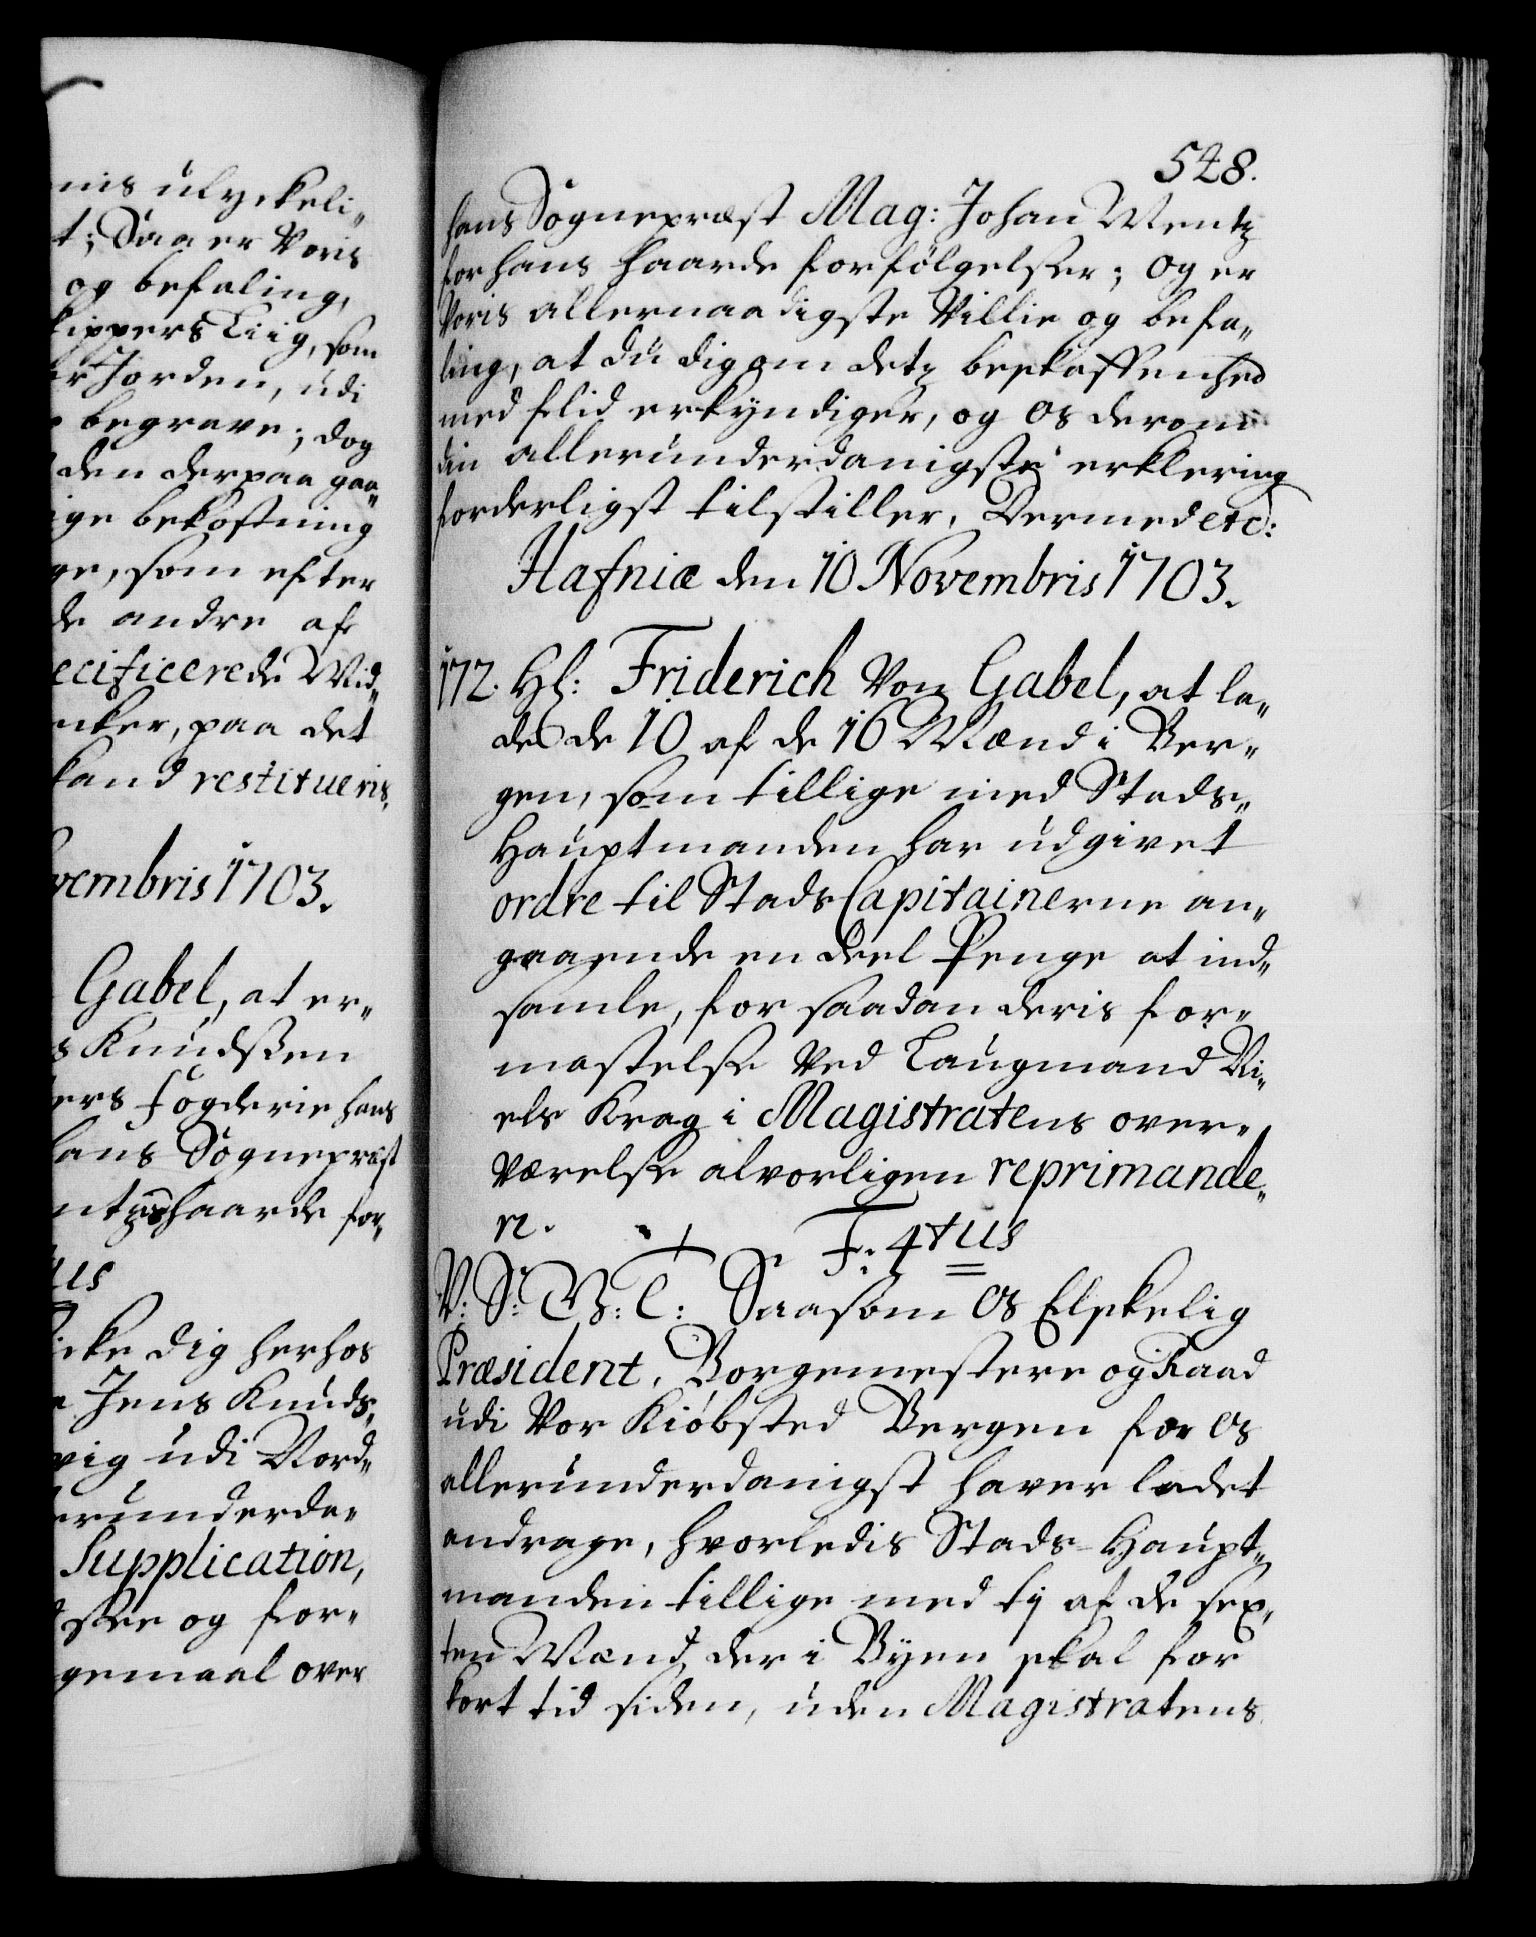 nis ulyckeli„
t; Saa er Voris
og befaling,
kippers Liig, som
er Jorden, udi
begrave; dog
den derpaa gaa„
ige bekostning
ge, som efter
de andre af
ecificerede Mid„
nker, paa det
kand restitueris.
vembris 1703.
Gabel, at er„
s Knudssen
ers fógderie hans
hans Sógnepræst
ntzes haarde for„
us
icke dig herhos
Jens Knuds„
vig udi Nord„
erunderda„
Supplication,
ser og for„
gemaal over
548.
hans Sógnepræst Mag: Johan Mentz
for hans haarde forfólgelser; og er
Voris allernaadigste Villie og befa„
ling, at du dig om detz beskaffenhed
med flid erkyndiger, og os derom
din allerunderdanigste erklering
forderligst tilstiller, Dermed etc:
Hafniæ den 10 Novembris 1703.
172. Hl: Friderich Von Gabel, at la„
de de 10 af de 16 Mænd i Ber„
gen, som tillige med Stads„
Hauptmanden har udgivet
ordre til Stads Capitainerne an„
gaaende en deel Penge at ind„
samle, for saadan deris for„
mastelse ved Laugmand Ni„
els Krag i Magistratens over„
værelse alvorligen reprimande„
re. F: 4tus
V: S: G: T: Saasom Os Elskelig
Præsident, Borgemestere og Raad
udi Vor Kióbsted Bergen for Os
allerunderdanigst haver ladet
andrage, hvorledis Stads-Haupt„
manden tillige med tij af de sex„
ten Mænd, der i Byen skal for
kort tid siden, uden Magistratens